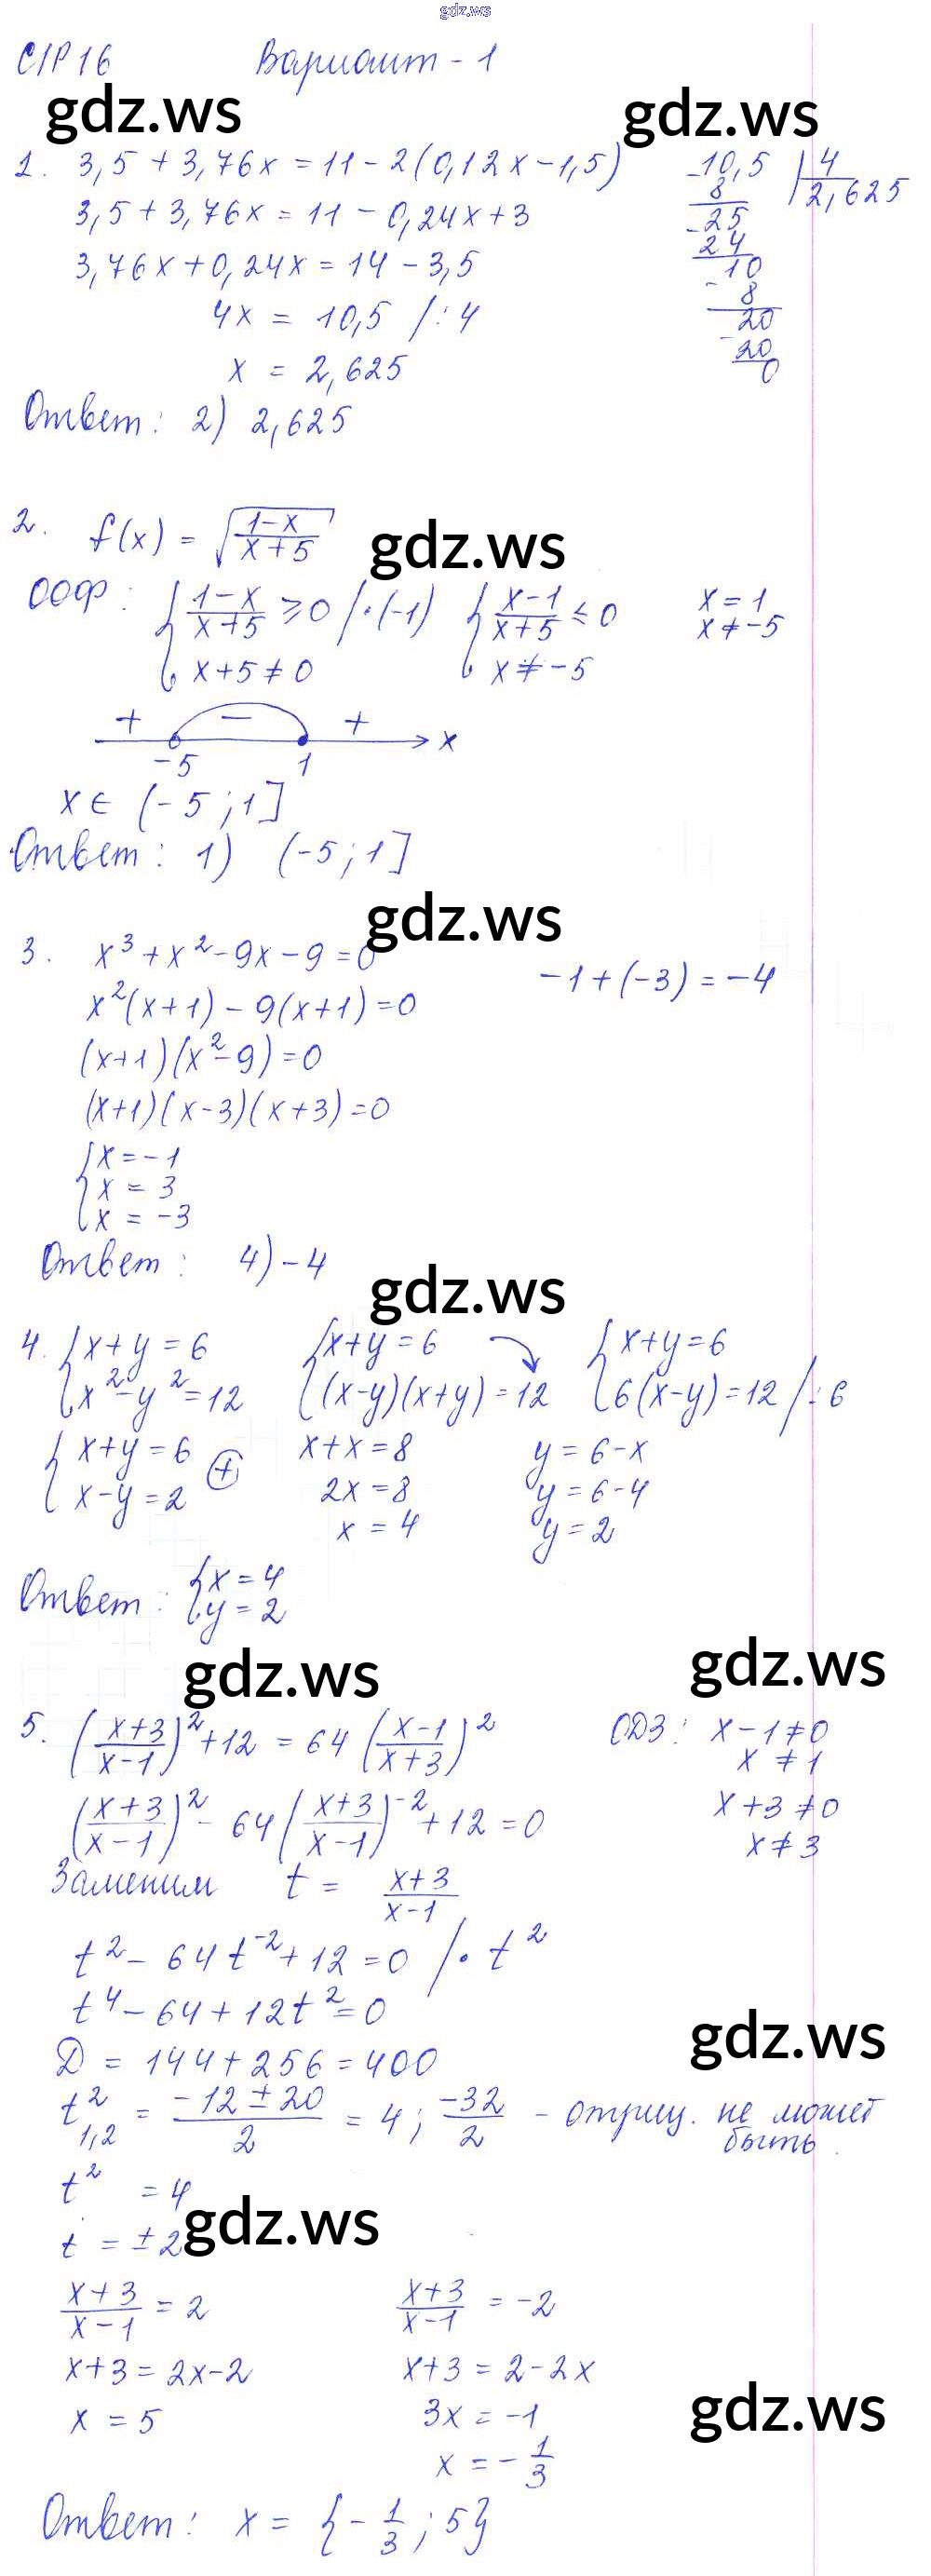 gdz.ws
С/Р 16 Вариант - 1
gdz.ws gdz.ws
1. 3,5 + 3,76x = 11 - 2(0,12x - 1,5)
3,5 + 3,76x = 11 - 0,24x + 3
3,76x + 0,24x = 14 - 3,5
4x = 10,5 /: 4
x = 2,625
10,5 | 4
8 2,625
25
24
10
8
20
20
0
Ответ: 2) 2,625
2. f(x) = √((1-x)/(x+5))
gdz.ws
ООФ: { (1-x)/(x+5) ≥ 0 /·(-1) { (x-1)/(x+5) ≤ 0 x = 1
x+5 ≠ 0 x ≠ -5 x ≠ -5
+ - + x
-5 1
x ∈ (-5; 1]
Ответ: 1) (-5; 1]
gdz.ws
3. x³ + x² - 9x - 9 = 0 -1 + (-3) = -4
x²(x+1) - 9(x+1) = 0
(x+1)(x²-9) = 0
(x+1)(x-3)(x+3) = 0
{ x = -1
x = 3
x = -3
Ответ: 4) -4
gdz.ws
4. { x+y = 6 { x+y = 6 { x+y = 6
x²-y² = 12 (x-y)(x+y) = 12 6(x-y) = 12 /: 6
{ x+y = 6 (+) x+x = 8 y = 6-x
x-y = 2 2x = 8 y = 6-4
x = 4 y = 2
Ответ: { x = 4
y = 2
gdz.ws gdz.ws
5. ((x+3)/(x-1))² + 12 = 64((x-1)/(x+3))² ОДЗ: x-1 ≠ 0
x ≠ 1
((x+3)/(x-1))² - 64((x+3)/(x-1))⁻² + 12 = 0 x+3 ≠ 0
x ≠ 3
Заменим t = (x+3)/(x-1)
t² - 64t⁻² + 12 = 0 /· t²
t⁴ - 64 + 12t² = 0
gdz.ws
D = 144 + 256 = 400
t²₁,₂ = (-12 ± 20)/2 = 4; -32/2 - отриц. не может
быть.
t² = 4
gdz.ws
t = ±2
(x+3)/(x-1) = 2 (x+3)/(x-1) = -2
x+3 = 2x-2 x+3 = 2-2x
x = 5 3x = -1
gdz.ws
x = -1/3
Ответ: x = {-1/3; 5}